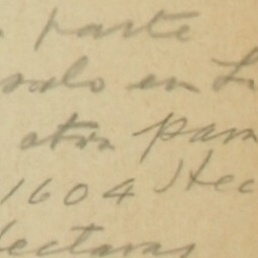 parte
solo en L
otra par
1604 Hec
Hectaras